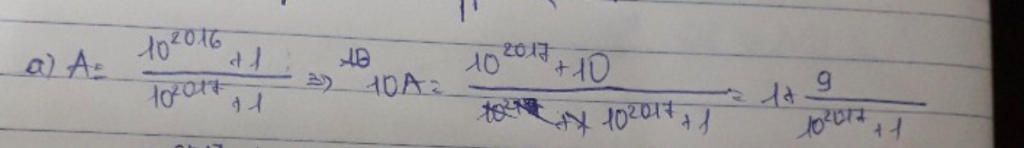 a) A = \frac{10^{2016}+1}{10^{2017}+1} => 10A = \frac{10^{2017}+10}{10^{2017}+1} = 1 + \frac{9}{10^{2017}+1}